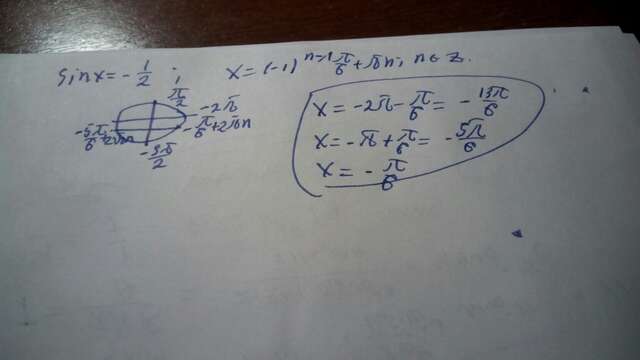 sin x = -1/2 ; x = (-1)^{n+1} π/6 + πn, n ∈ Z.
π/2
-2π
-5π/6 + 2πn
-π/6 + 2πn
-3π/2
x = -2π - π/6 = -13π/6
x = -π + π/6 = -5π/6
x = -π/6